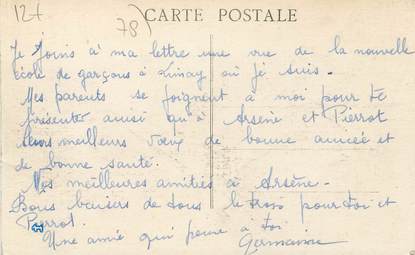 12+
78)
CARTE POSTALE
Je joins à ma lettre une vue de la nouvelle
école de garçons à Limay où je suis.
Mes parents se joignent a moi pour te
présenter aussi qu'à Arsène et Pierrot
leurs meilleurs vœux de bonne année et
de bonne santé.
Mes meilleures amitiés à Arsène.
Bons baisers de tous le trois pour toi et
Pierrot.
Une amie qui pense à toi
Germaine